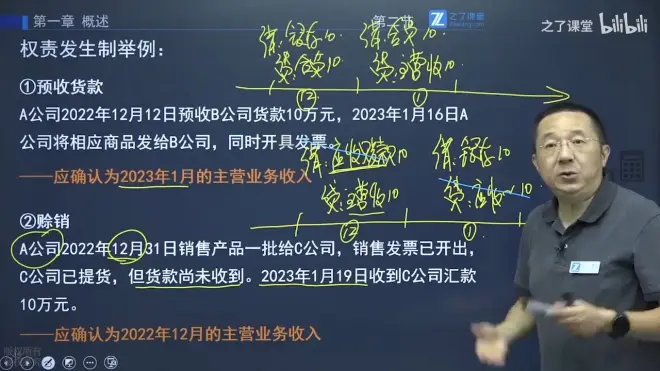 第一章 概述
第二节
之了课堂
之了课堂 bilibili
权责发生制举例：
借:银存10
借:合负10
贷:合负10
贷:主营收10
⑫
①
①预收货款
A公司2022年12月12日预收B公司货款10万元，2023年1月16日A
公司将相应商品发给B公司，同时开具发票。
——应确认为2023年1月的主营业务收入
借:应收账款10
借:银存10
贷:主营收10
贷:应收~10
⑫
①
②赊销
A公司2022年12月31日销售产品一批给C公司，销售发票已开出，
C公司已提货，但货款尚未收到。2023年1月19日收到C公司汇款
10万元。
——应确认为2022年12月的主营业务收入
版权所有